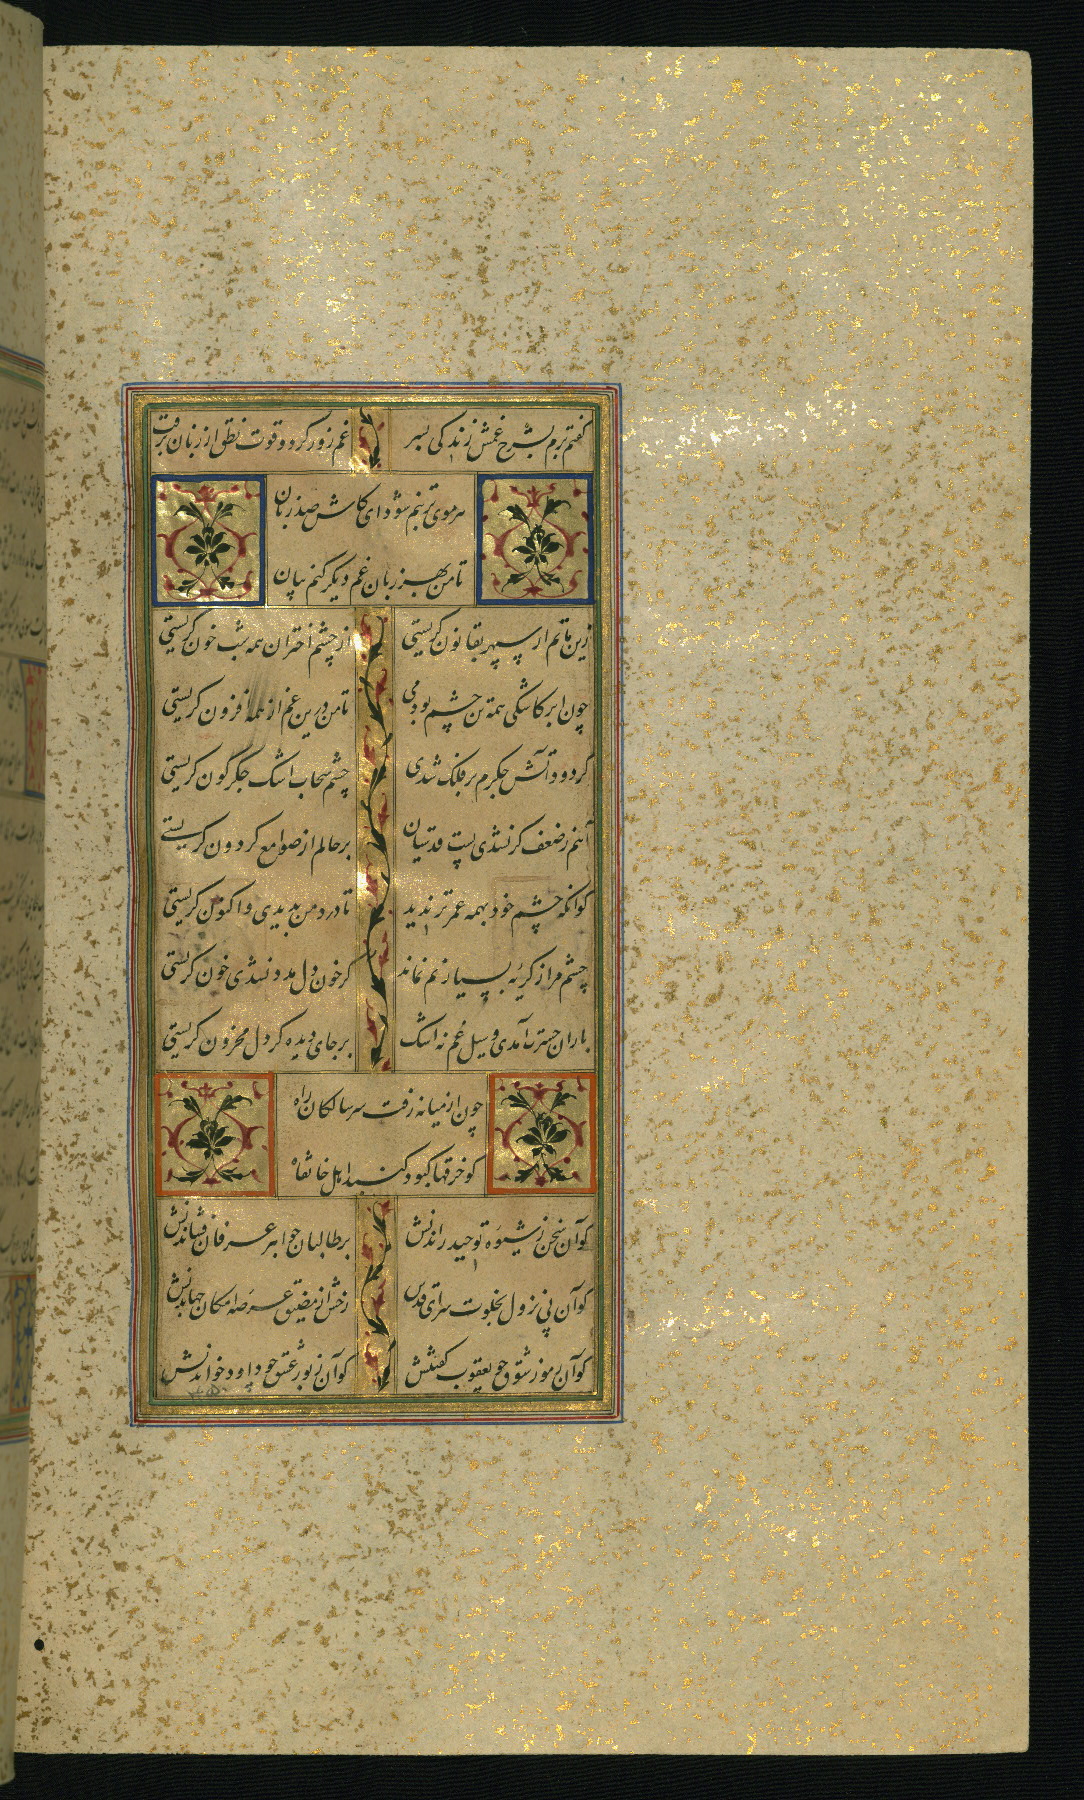 گفتم برم بشرح غمش زندگی بسر غم زور کرد و قوت نطق از زبان برفت
سرموی بر تنم شود ای کاش صد زبان
تا من بهر زبان غم دیگر کنم بیان
زین ماتم ار سپهر بقانون گریستی از چشم اختران همه شب خون گریستی
چون ابر کاشکی همه تن چشم بودمی تا من درین غم از همه افزون گریستی
گر دود آتش جگرم بر فلک شدی چشم سحاب اشک جگرگون گریستی
آهم ز ضعف گر نشدی پست قدسیان بر حالم از صوامع گردون گریستی
کو آنکه چشم خود بهمه عمر تر ندید تا درد من بدیدی و اکنون گریستی
چشم مرا ز گریه بسیار نم نماند گر خون دل مدد نشدی خون گریستی
باران حسرت آمدی و سیل غم نه اشک بر جای دیده گر دل محزون گریستی
چون از میانه رفت سر سالکان راه
گو خرقها کبود کنید اهل خانقاه
کو آن سخن ز شیوه توحید راندنش بر طالبان جواهر عرفان فشاندنش
کو آن پی نزول بخلوت سرای قدس رخش از مضیق عرصه امکان جهاندنش
کو آن رموز شوق چو یعقوب گفتنش کو آن زبور عشق چو داود خواندنش